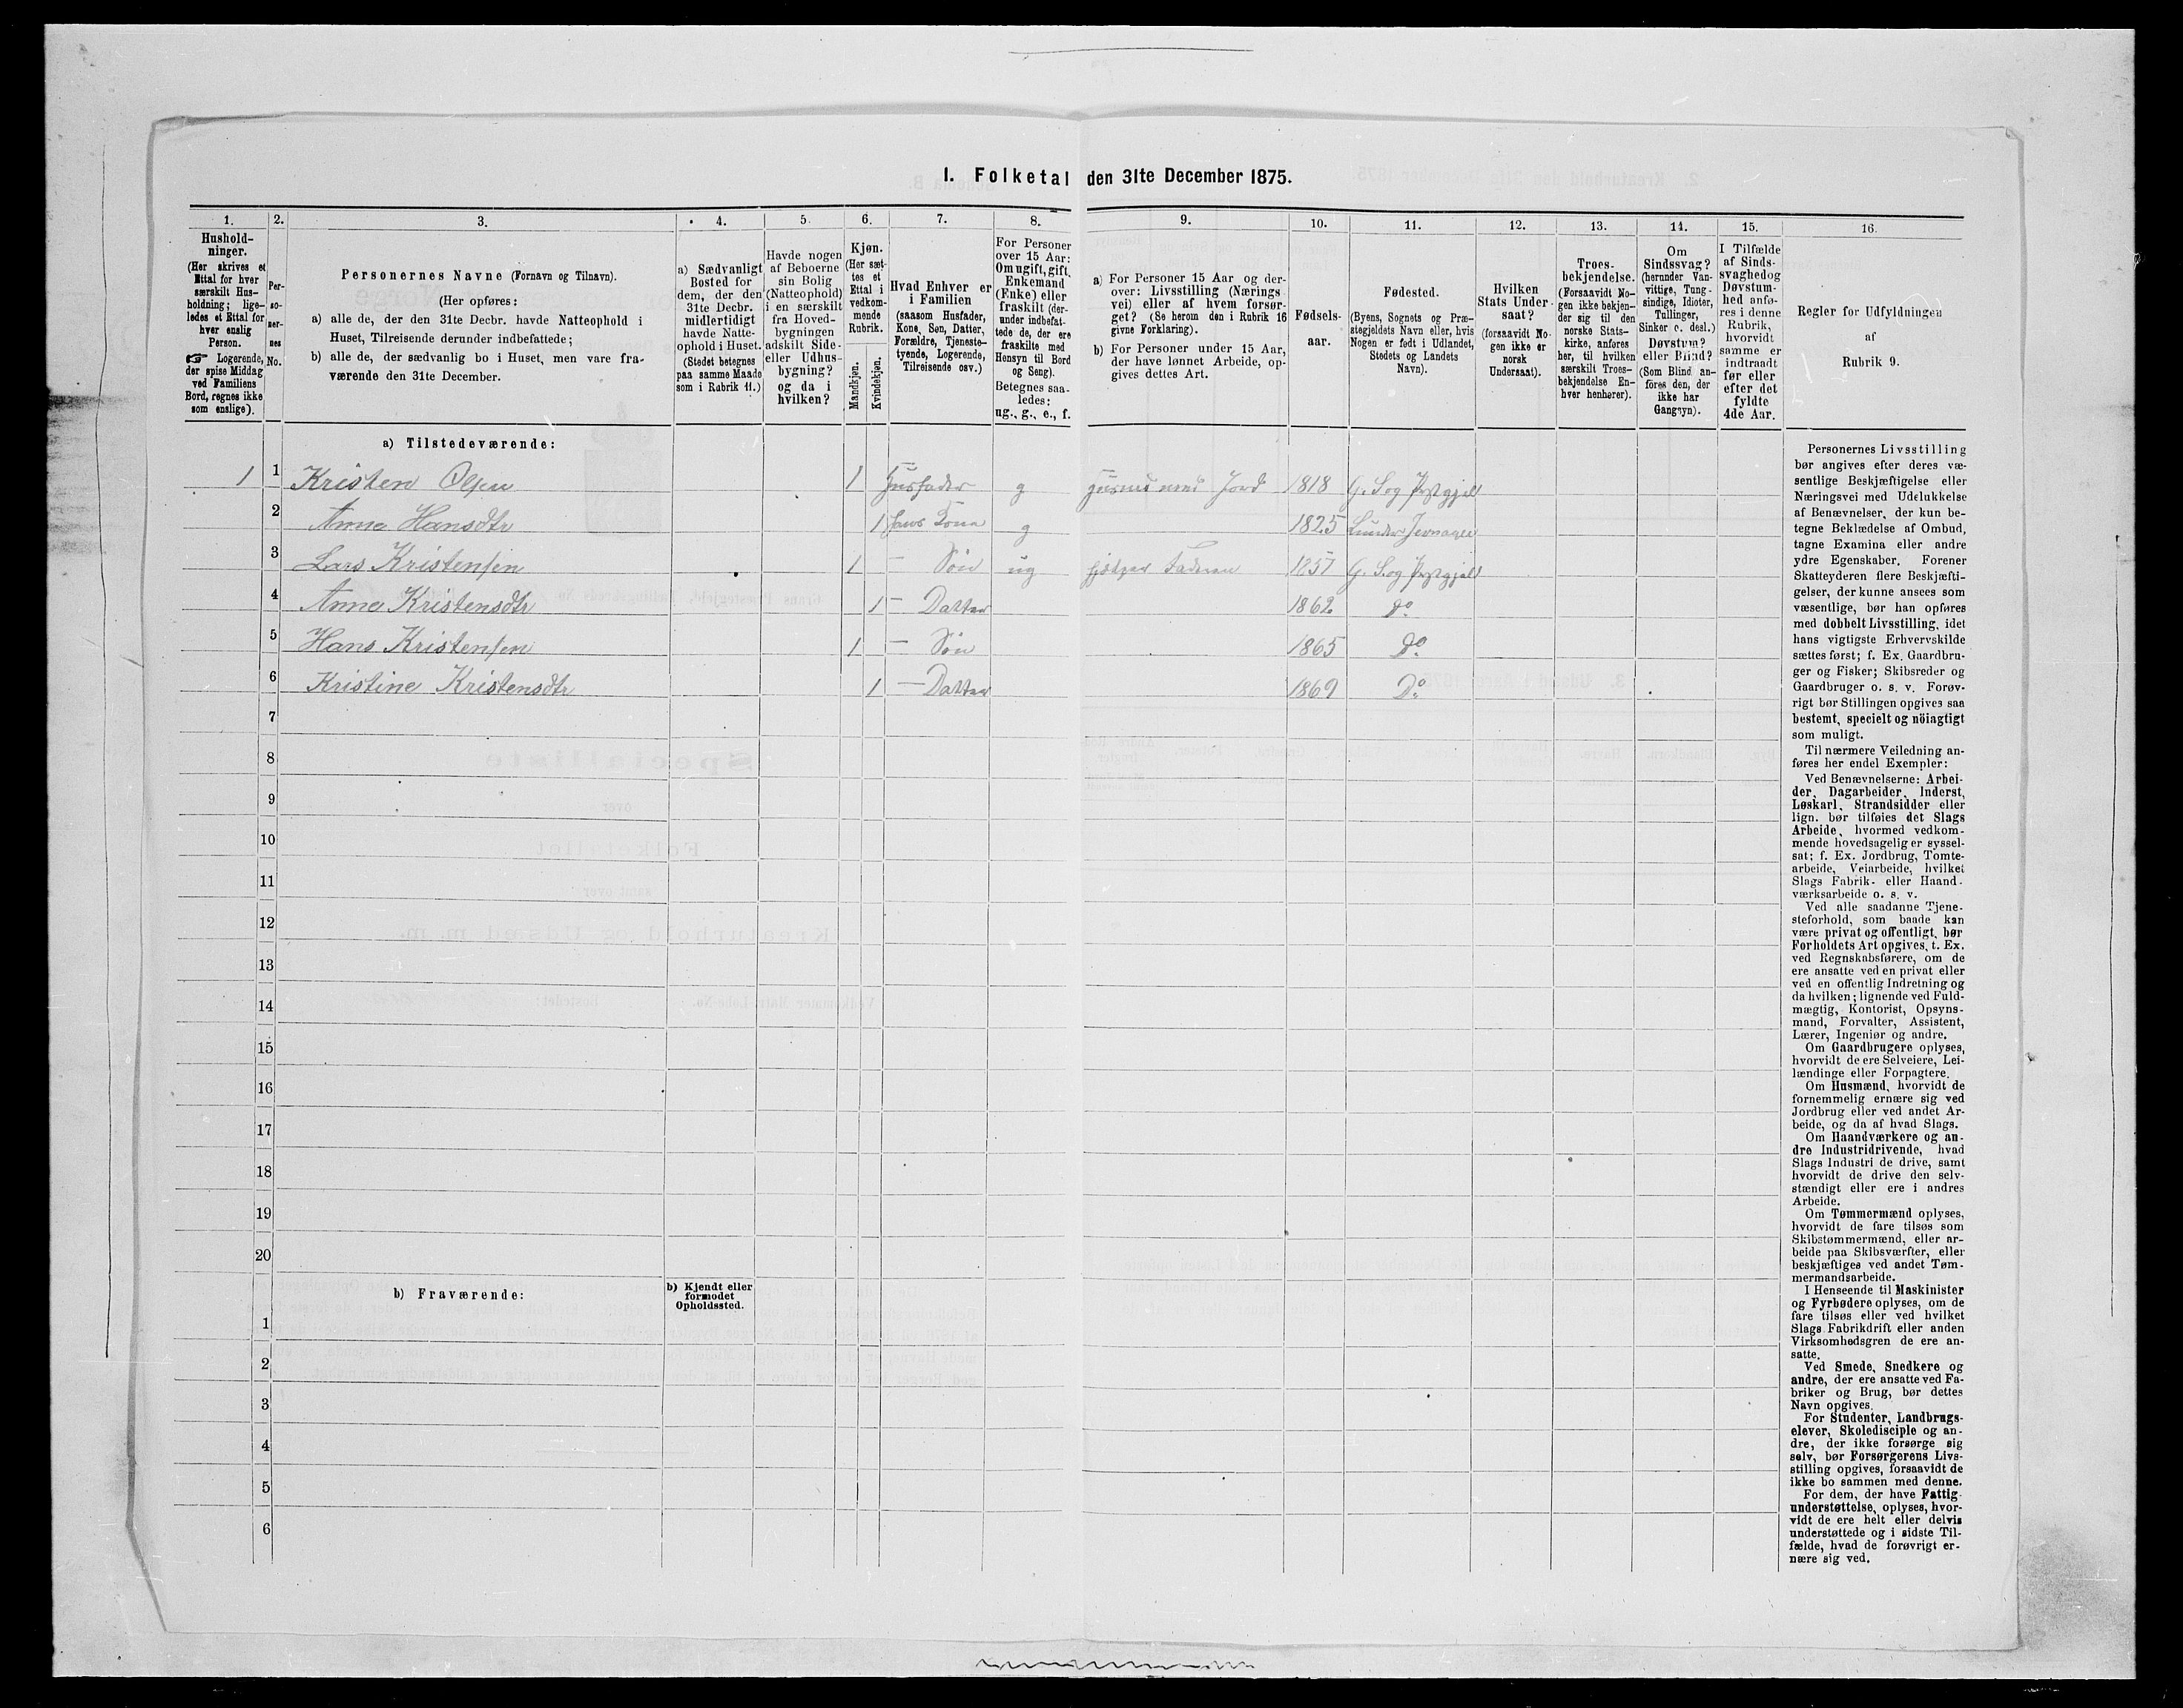 I. Folketal den 31te December 1875.
1. 2. 3. 4. 5. 6. 7. 8. 9. 10. 11. 12. 13. 14. 15. 16.
Hushold-
ninger.
(Her skrives et
Ettal for hver
særskilt Hus-
holdning; lige-
ledes et Ettal for
hver enslig
Person.
☞ Logerende,
der spise Middag
ved Familiens
Bord, regnes ikke
som enslige).
Per-
so-
ner-
nes
No.
Personernes Navne (Fornavn og Tilnavn).
(Her opføres:
a) alle de, der den 31te Decbr. havde Natteophold i
Huset, Tilreisende derunder indbefattede;
b) alle de, der sædvanlig bo i Huset, men vare fra-
værende den 31te December.
a) Sædvanligt
Bosted for
dem, der den
31te Decbr.
midlertidigt
havde Natte-
ophold i Huset.
(Stedet betegnes
paa samme Maade
som i Rubrik 11.)
Havde nogen
af Beboerne
sin Bolig
(Natteophold)
i en særskilt
fra Hoved-
bygningen
adskilt Side-
eller Udhus-
bygning?
og da i
hvilken?
Kjøn.
(Her sæt-
tes et
Ettal i
vedkom-
mende
Rubrik.
Mandkjøn.
Kvindekjøn.
Hvad Enhver er
i Familien
(saasom Husfader,
Kone, Søn, Datter,
Forældre, Tjeneste-
tyende, Logerende,
Tilreisende osv.)
For Personer
over 15 Aar:
Om ugift, gift,
Enkemand
(Enke) eller
fraskilt (der-
under indbefat-
tede de, der ere
fraskilte med
Hensyn til Bord
og Seng).
Betegnes saa-
ledes:
ug., g., e., f.
a) For Personer 15 Aar og der-
over: Livsstilling (Nærings
vei) eller af hvem forsør-
get? (Se herom den i Rubrik 16
givne Forklaring).
b) For Personer under 15 Aar,
der have lønnet Arbeide, op-
gives dettes Art.
Fødsels-
aar.
Fødested.
(Byens, Sognets og Præ-
stegjeldets Navn eller, hvis
Nogen er født i Udlandet,
Stedets og Landets
Navn).
Hvilken
Stats Under-
saat?
(forsaavidt No-
gen ikke er
norsk
Undersaat).
Troes-
bekjendelse.
(Forsaavidt No-
gen ikke bekjen-
der sig til den
norske Stats-
kirke, anføres
her, til hvilken
særskilt Troes-
bekjendelse En-
hver henhører).
Om
Sindssvag?
(herunder Van-
vittige, Tung-
sindige, Idioter,
Tullinger,
Sinker o. desl.)
Døvstum?
eller Blind?
(Som Blind an-
føres den, der
ikke har
Gangsyn).
I Tilfælde
af Sinds-
svaghed og
Døvstum-
hed anfø-
res i denne
Rubrik,
hvorvidt
samme er
indtraadt
før eller
efter det
fyldte
4de Aar.
Regler for Udfyldningen
af
Rubrik 9.
a) Tilstedeværende:
1 1 Kristen Olsen 1 Husfader g Husmand Jord 1818 G. S og Prstgjeld
2 Anna Hansdtr 1 hans Kona g 1825 Lunder Jevnager
3 Lars Kristensen 1 — Søn ug hjelper Faderen 1857 G. S. og Prstgjeld
4 Anne Kristensdtr 1 — Datter 1862 Do
5 Hans Kristensen 1 — Søn 1865 Do
6 Kristine Kristensdtr 1 — Datter 1869 Do
7
8
9
10
11
12
13
14
15
16
17
18
19
20
b) Fraværende:
b) Kjendt eller
formodet
Opholdssted.
1
2
3
4
5
6
Personernes Livsstilling
bør angives efter deres væ-
sentlige Beskjæftigelse eller
Næringsvei med Udelukkelse
af Benævnelser, der kun be-
tegne Beklædelse af Ombud,
tagne Examina eller andre
ydre Egenskaber. Forener
Skatteyderen flere Beskjæfti-
gelser, der kunne ansees som
væsentlige, bør han opføres
med dobbelt Livsstilling, idet
hans vigtigste Erhvervskilde
sættes først; f. Ex. Gaardbru-
ger og Fisker; Skibsreder og
Gaardbruger o. s. v. Forøv-
rigt bør Stillingen opgives saa
bestemt, specielt og nöiagtigt
som muligt.
Til nærmere Veiledning an-
føres her endel Exempler:
Ved Benævnelserne: Arbei-
der, Dagarbeider, Inderst,
Løskarl, Strandsidder eller
lign. bør tilføies det Slags
Arbeide, hvormed vedkom-
mende hovedsagelig er syssel-
sat; f. Ex. Jordbrug, Tomte-
arbeide, Veiarbeide, hvilket
Slags Fabrik- eller Haand-
værksarbeide o. s. v.
Ved alle saadanne Tjene-
steforhold, som baade kan
være privat og offentligt, bør
Forholdets Art opgives, t. Ex.
ved Regnskabsførere, om de
ere ansatte ved en privat eller
ved en offentlig Indretning og
da hvilken; lignende ved Fuld-
mægtig, Kontorist, Opsyns-
mand, Forvalter, Assistent,
Lærer, Ingeniør og andre.
Om Gaardbrugere oplyses,
hvorvidt de ere Selveiere, Lei-
lændinge eller Forpagtere.
Om Husmænd, hvorvidt de
fornemmelig ernære sig ved
Jordbrug eller ved andet Ar-
beide, og da af hvad Slags.
Om Haandværkere og an-
dre Industridrivende, hvad
Slags Industri de drive, samt
hvorvidt de drive den selv-
stændigt eller ere i andres
Arbeide.
Om Tømmermænd oplyses,
hvorvidt de fare tilsøs som
Skibstømmermænd, eller ar-
beide paa Skibsværfter, eller
beskjæftiges ved andet Tøm-
mermandsarbeide.
I Henseende til Maskinister
og Fyrbødere oplyses, om de
fare tilsøs eller ved hvilket
Slags Fabrikdrift eller anden
Virksomhedsgren de ere an-
satte.
Ved Smede, Snedkere og
andre, der ere ansatte ved Fa-
briker og Brug, bør dettes
Navn opgives.
For Studenter, Landbrugs-
elever, Skoledisciple og an-
dre, der ikke forsørge sig
selv, bør Forsørgerens Livs-
stilling opgives, forsaavidt de
ikke bo sammen med denne.
For dem, der have Fattig-
understøttelse, oplyses, hvor-
vidt de ere helt eller delvis
understøttede og i sidste Til-
fælde, hvad de forøvrigt er-
nære sig ved.